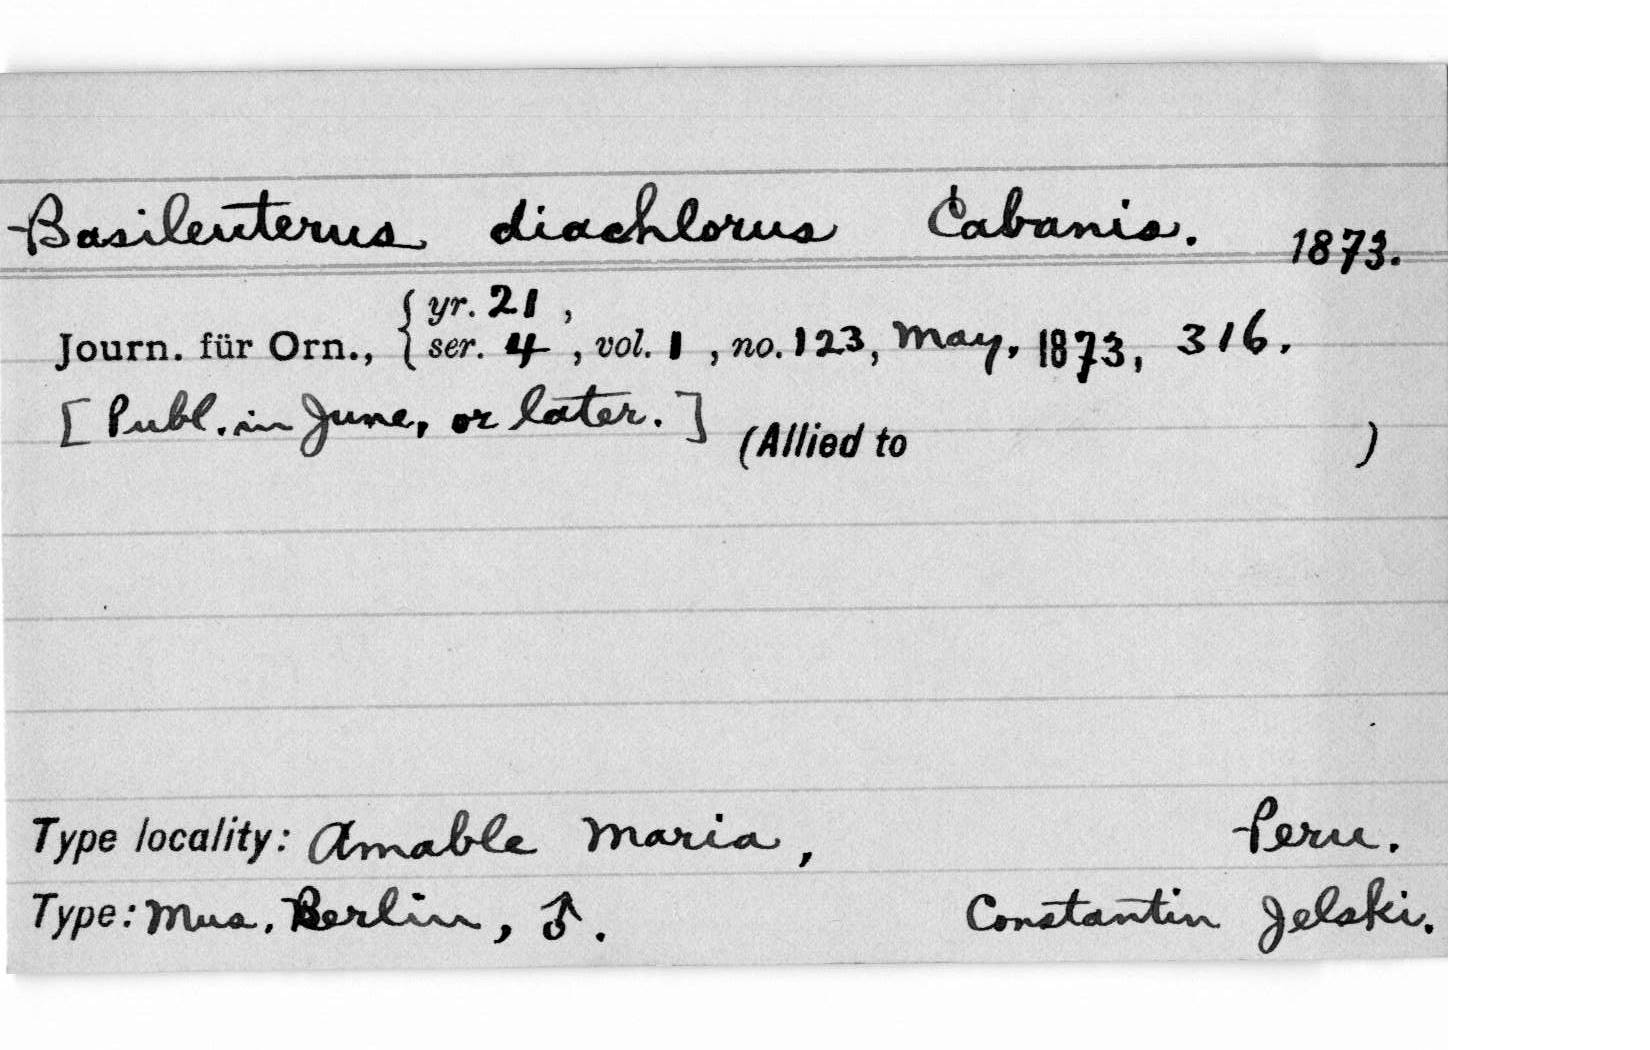 Basileuterus diachlorus Cabanis. 1873.
Journ. für Orn., { yr. 21 ,
ser. 4 , vol. 1 , no. 123, May, 1873, 316.
[Publ. in June, or later.] (Allied to )
Type locality: Amable Maria, Peru.
Type: Mus. Berlin, ♂. Constantin Jelski.